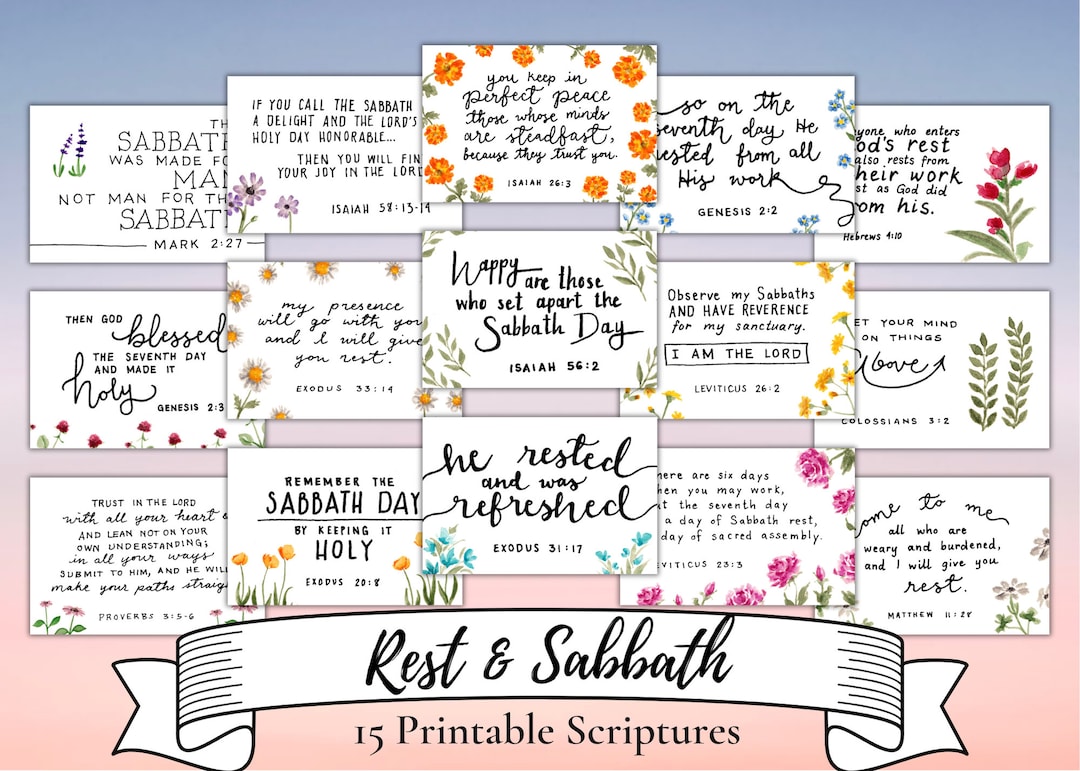 TH
SABBATH
WAS MADE FO
MAN
NOT MAN FOR TH
SABBATH
MARK 2:27
IF YOU CALL THE SABBATH
A DELIGHT AND THE LORD'S
HOLY DAY HONORABLE...
THEN YOU WILL FIN
YOUR JOY IN THE LORD
ISAIAH 58:13-14
you keep in
perfect peace
those whose minds
are steadfast,
because they trust you.
ISAIAH 26:3
so on the
seventh day He
rested from all
His work
GENESIS 2:2
nyone who enters
God's rest
also rests from
their work
st as God did
from his.
Hebrews 4:10
THEN GOD
blessed
THE SEVENTH DAY
AND MADE IT
holy
GENESIS 2:3
my presence
will go with you
and I will give
you rest.
EXODUS 33:14
Happy are those
who set apart the
Sabbath Day
ISAIAH 56:2
Observe my Sabbaths
AND HAVE REVERENCE
for my sanctuary.
I AM THE LORD
LEVITICUS 26:2
ET YOUR MIND
ON THINGS
above
COLOSSIANS 3:2
TRUST IN THE LORD
with all your heart &
AND LEAN NOT ON YOUR
OWN UNDERSTANDING;
in all your ways
SUBMIT TO HIM, AND HE WILL
make your paths straigh
PROVERBS 3:5-6
REMEMBER THE
SABBATH DAY
BY KEEPING IT
HOLY
EXODUS 20:8
he rested
and was
refreshed
EXODUS 31:17
here are six days
hen you may work,
ut the seventh day
a day of Sabbath rest,
day of sacred assembly.
LEVITICUS 23:3
ome to me
all who are
weary and burdened,
and I will give you
rest.
MATTHEW 11:28
Rest & Sabbath
15 Printable Scriptures